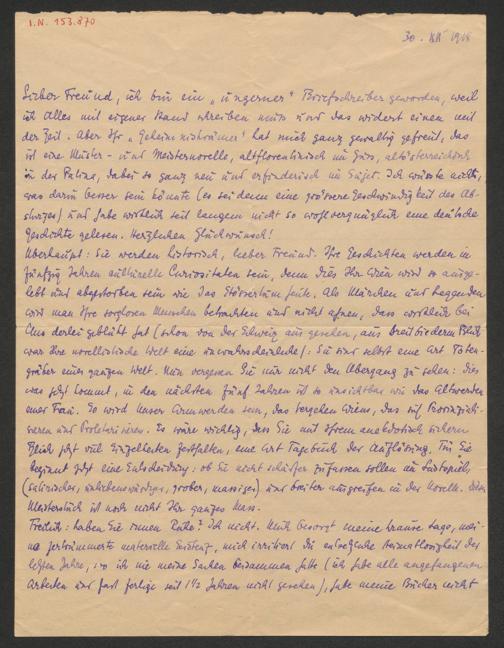 I.N. 153.870
30. XII 1918
Lieber Freund, ich bin ein „ungerner" Briefschreiber geworden, weil
ich Alles mit eigener Hand schreiben muss und das widert einen mit
der Zeit. Aber Ihr „Geheimniskrämer" hat mich ganz gewaltig gefreut, das
ist eine Muster- und Meisternovelle, altflorentinisch im Guss, altösterreichisch
in der Patina, dabei so ganz neu und erfinderisch im Sujet. Ich wüsste nichts,
was darin besser sein könnte (es sei denn eine grössere Geschwindigkeit des Ab-
) und habe wirklich seit langem nicht so wohlvergnüglich eine deutsche
Geschichte gelesen. Herzlichen Glückwunsch!
Überhaupt: Sie werden historisch, lieber Freund. Ihre Geschichten werden in
fünfzig Jahren culturelle Curiositäten sein, denn dies Ihr Wien wird so ausge-
lebt und abgestorben sein wie das heute. Als Märchen und Legenden
wird man Ihre sorglosen Menschen betrachten und nicht ahnen, dass wirklich bei
uns derlei geblüht hat (schon von der Schweiz aus gesehen, aus breitbiederm Blick
war Ihre novellistische Welt eine unwahrscheinliche). Sie sind selbst eine Art Toten-
gräber einer ganzen Welt. Nun vergessen Sie nur nicht den Übergang zu sehen: dies
was jetzt kommt, in den nächsten fünf Jahren ist so unsichtbar wie das Altwerden
einer Frau. So wird unser Armwerden sein, das Vergehen Wiens, das sich Provinziali-
sieren und Proletarisieren. Es wäre wichtig, dass Sie mit Ihrem anekdotisch sichern
Blick jetzt viel Einzelheiten festhalten, eine Art Tagebuch der Auflösung. Für Sie
beginnt jetzt eine Entscheidung: ob Sie nicht schärfer zufassen sollen im Lustspiel,
(satirischer, unliebenswürdiger, grober, massiger) und breiter ausgreifen in der Novelle. Dieses
Meisterstück ist noch nicht Ihr ganzes Mass.
Freilich: haben Sie innen Ruhe? Ich nicht. Mich besorgt meine krause Lage, mei-
ne zertrümmerte materielle Existenz, mich irritiert die Heimatlosigkeit der
letzten Jahre, wo ich nie meine Sachen beisammen hatte (ich habe alle angefangenen
Arbeiten und fast fertige seit 1½ Jahren nicht gesehen), habe meine Bücher nicht